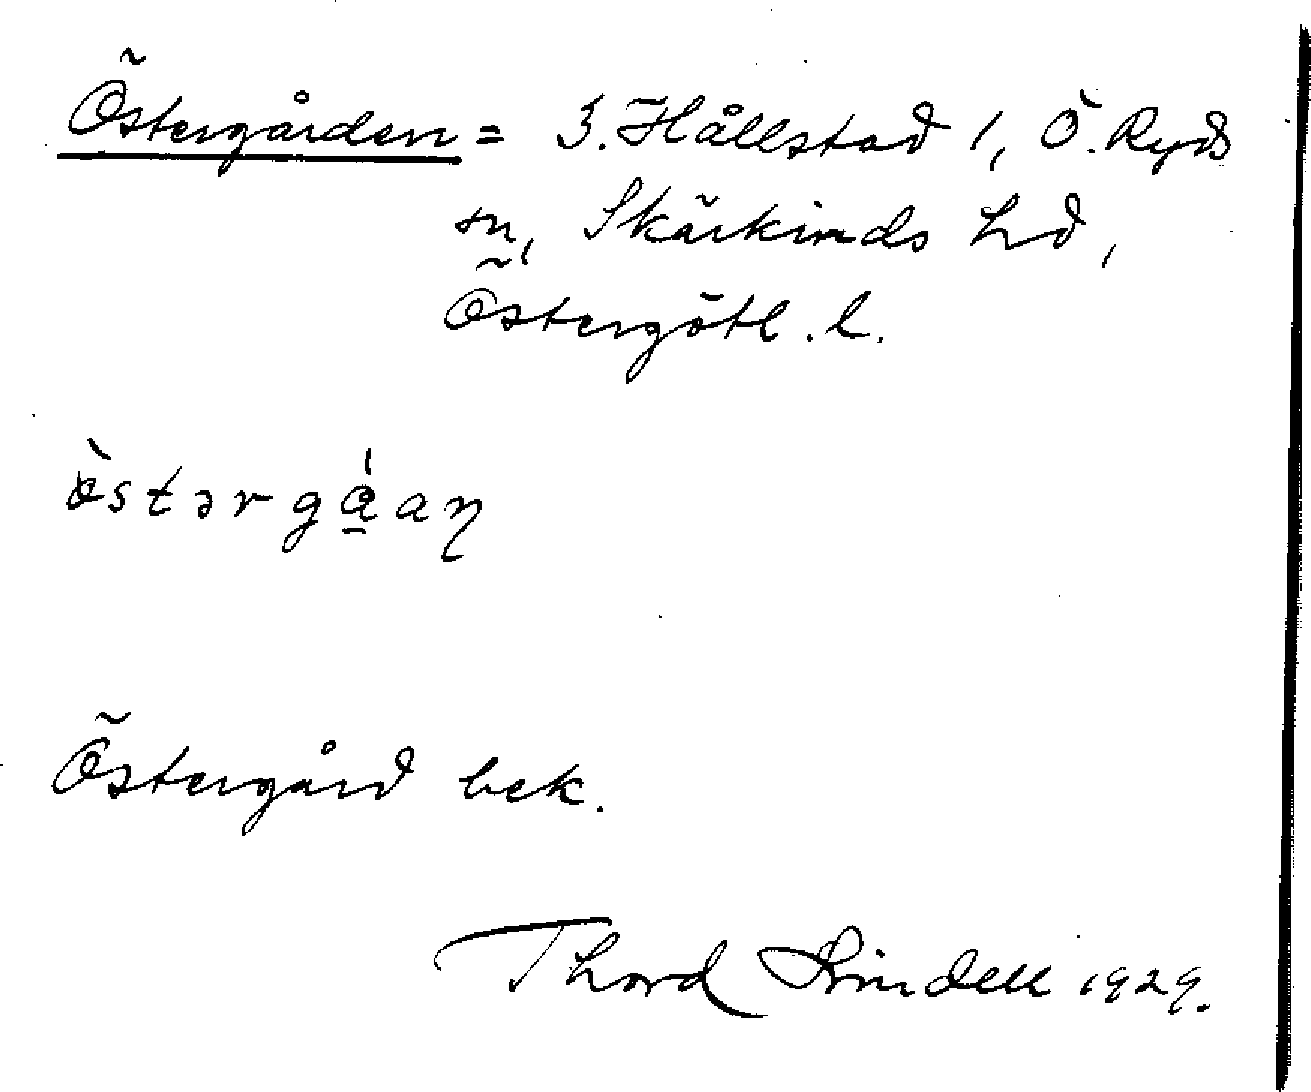 Östergården = 3. Hållstad 1, Ö. Ryds
sn, Skärkinds hd,
Östergötl. l.
östərgåaŋ
Östergård bek.
Thord Lindell 1929.